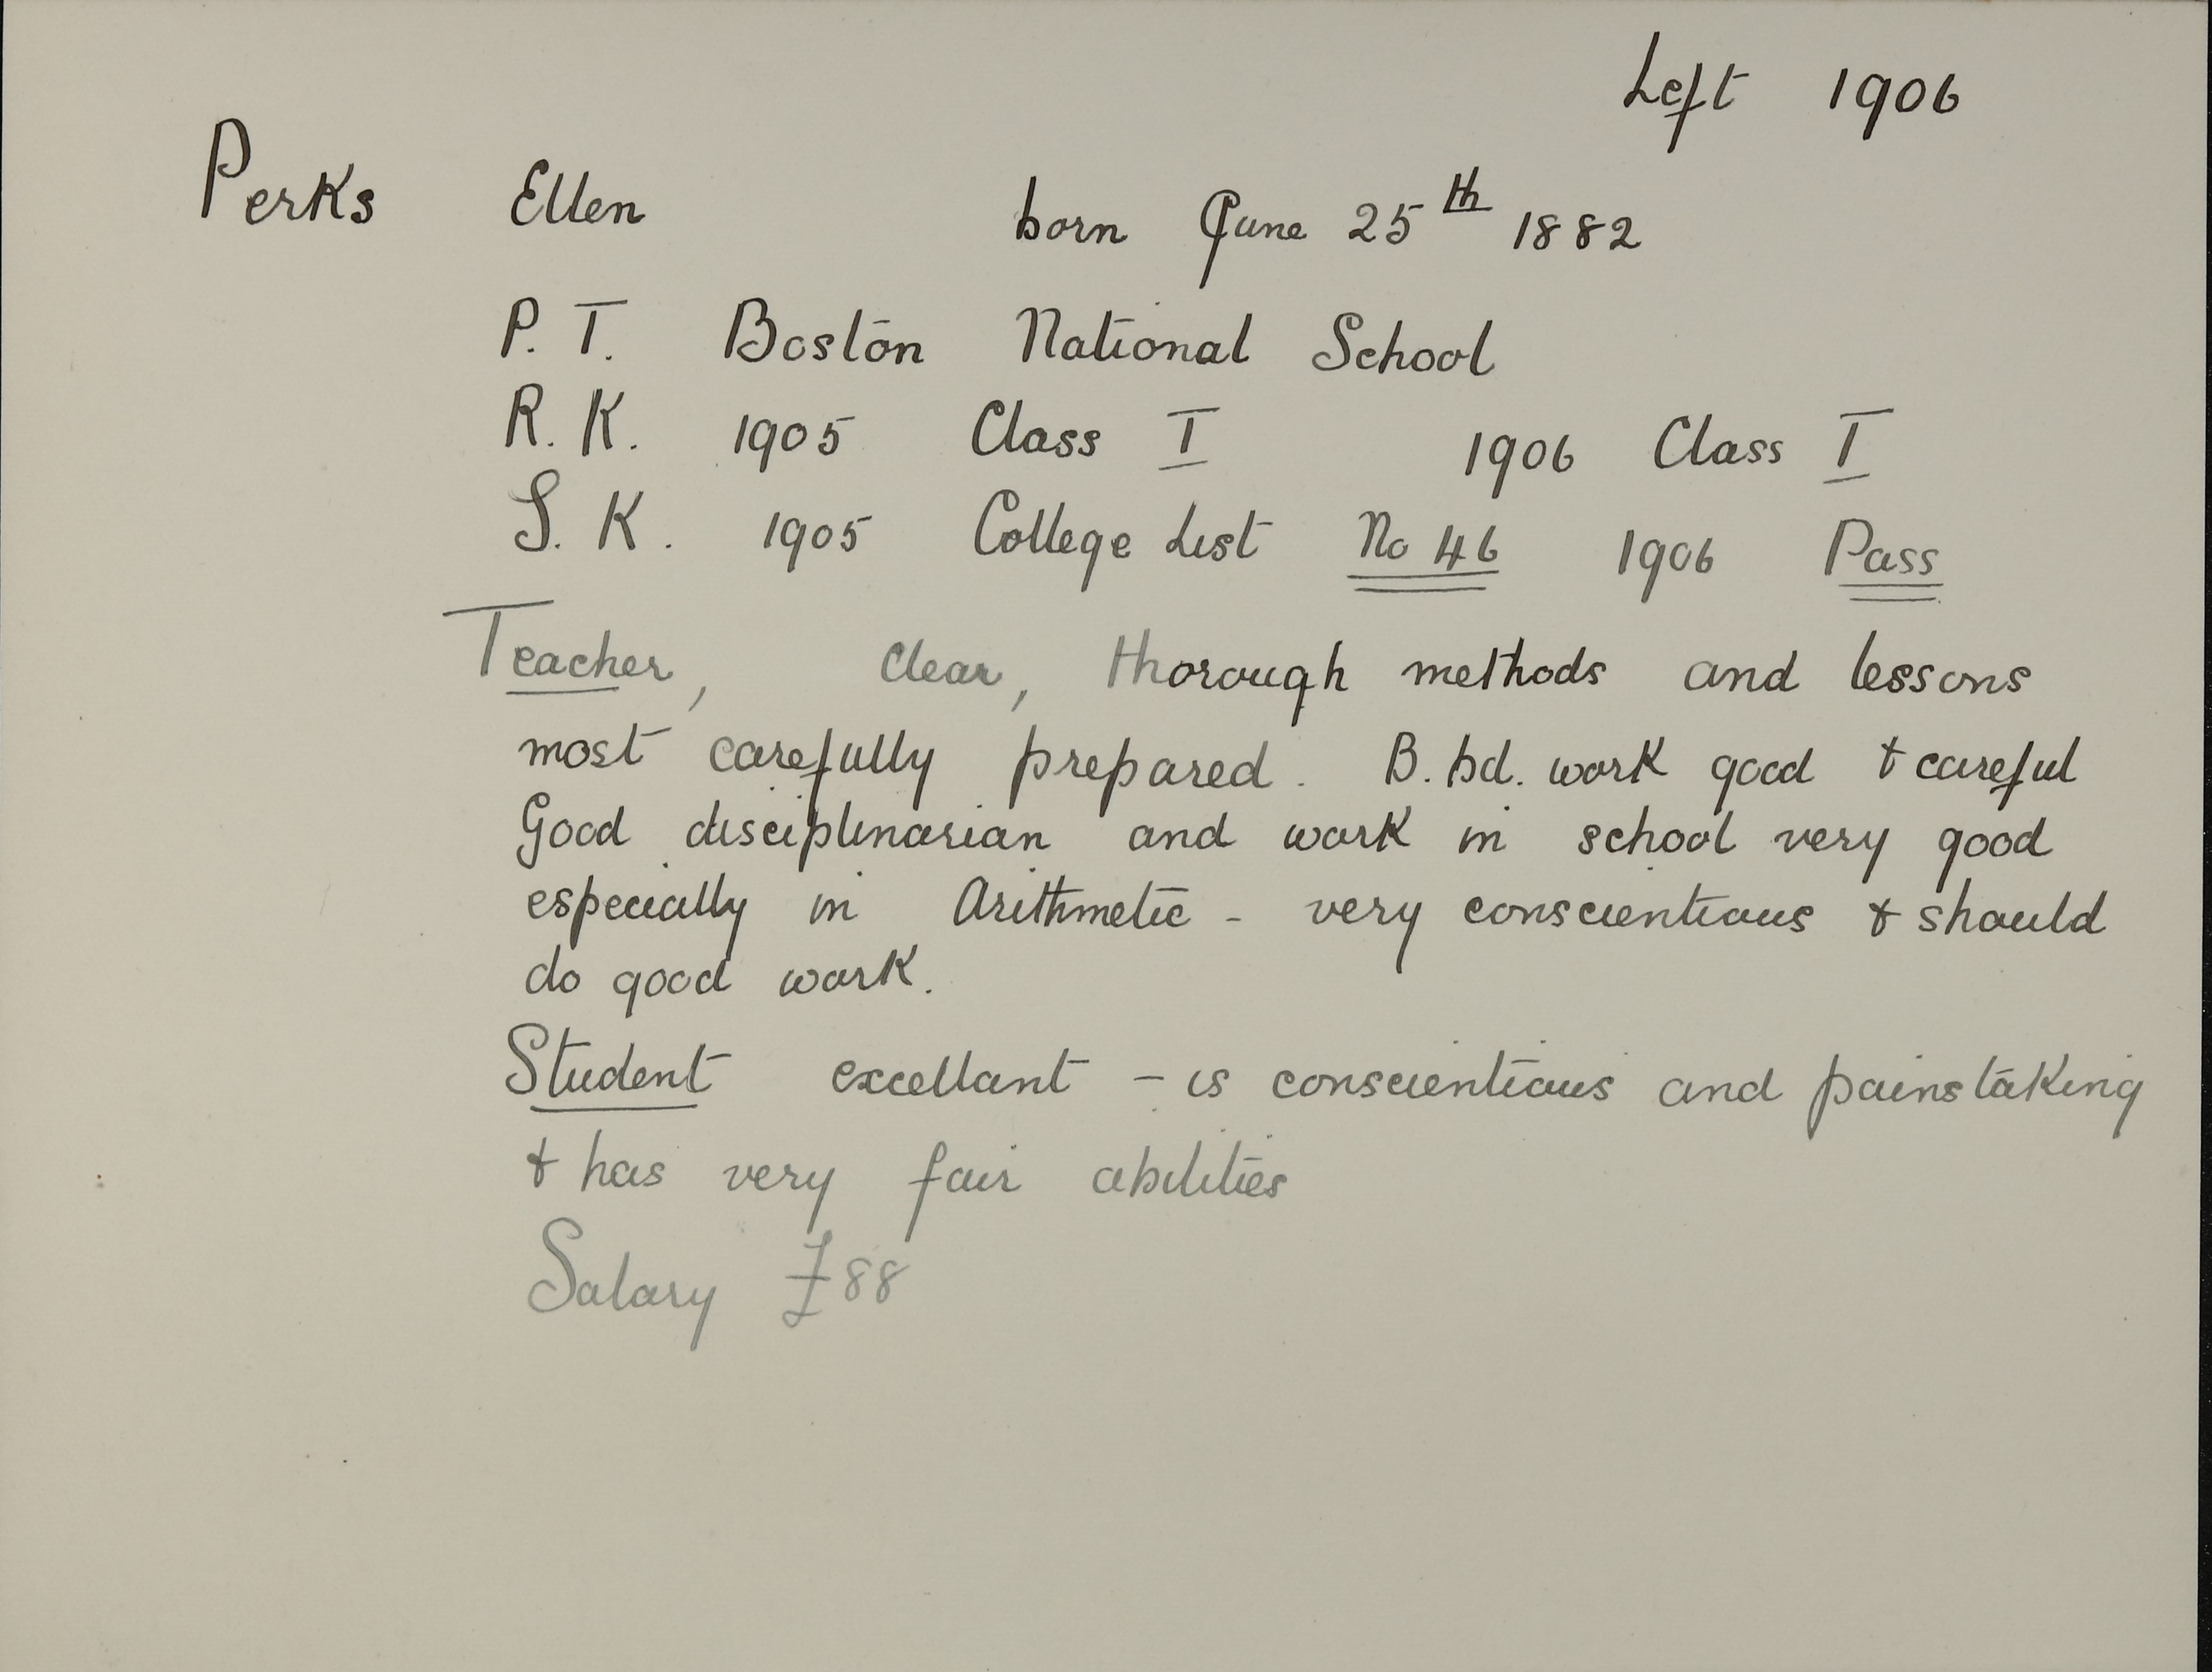 Left 1906
Perks Ellen born June 25th 1882
P. T. Boston National School
R. K. 1905 Class I 1906 Class I
S. K. 1905 College List No 46 1906 Pass
Teacher, clear, thorough methods and lessons
most carefully prepared. B. bd. work good & careful
Good disciplinarian and work in school very good
especially in Arithmetic - very conscientious & should
do good work.
Student excellant - is conscientious and painstaking
& has very fair abilities
Salary £88